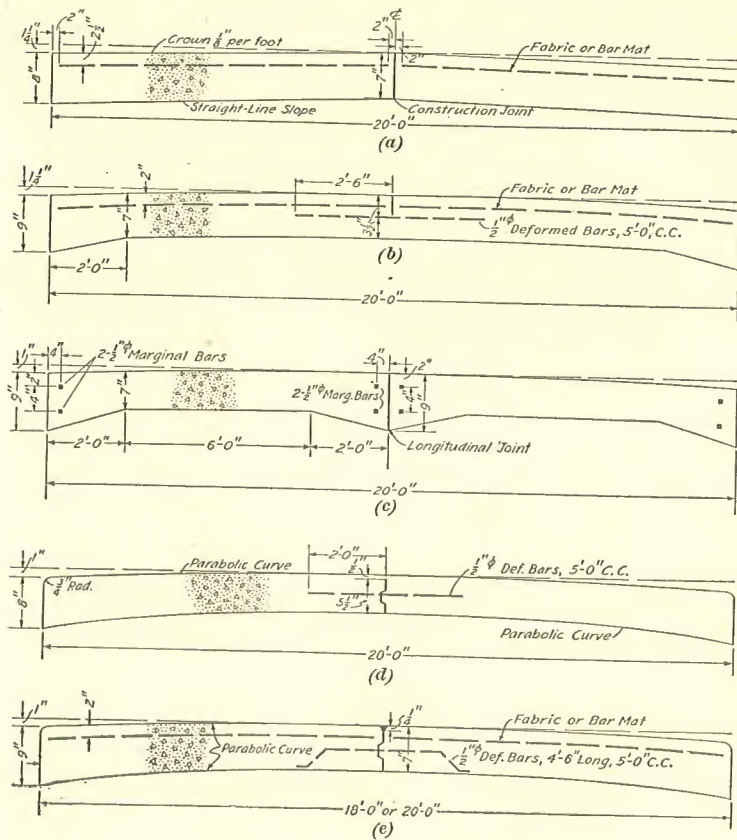 1 1/4" 2" 2 1/2" Crown 1/8" per foot 2" ȼ 2" Fabric or Bar Mat
8" 7"
Straight-Line Slope Construction Joint
20'-0"
(a)
1 1/4" 2" 2'-6" Fabric or Bar Mat
9" 7" 3 1/2" 1/2"ᶲ Deformed Bars, 5'-0", C.C.
2'-0" (b)
20'-0"
1" 4" 2-1/2"ᶲ Marginal Bars 4" 2"
9" 4" 2" 7" 2-1/2"ᶲ Marg. Bars 4" 9"
2'-0" 6'-0" 2'-0" Longitudinal Joint
20'-0"
(c)
1" Parabolic Curve 2'-0" 1/2"ᶲ Def. Bars, 5'-0" C.C.
8" 3/4" Rad. 5 1/2"
Parabolic Curve
20'-0"
(d)
1" 2" 1/4" Fabric or Bar Mat
9" Parabolic Curve 7" 1/2"ᶲ Def. Bars, 4'-6" Long, 5'-0" C.C.
18'-0" or 20'-0"
(e)